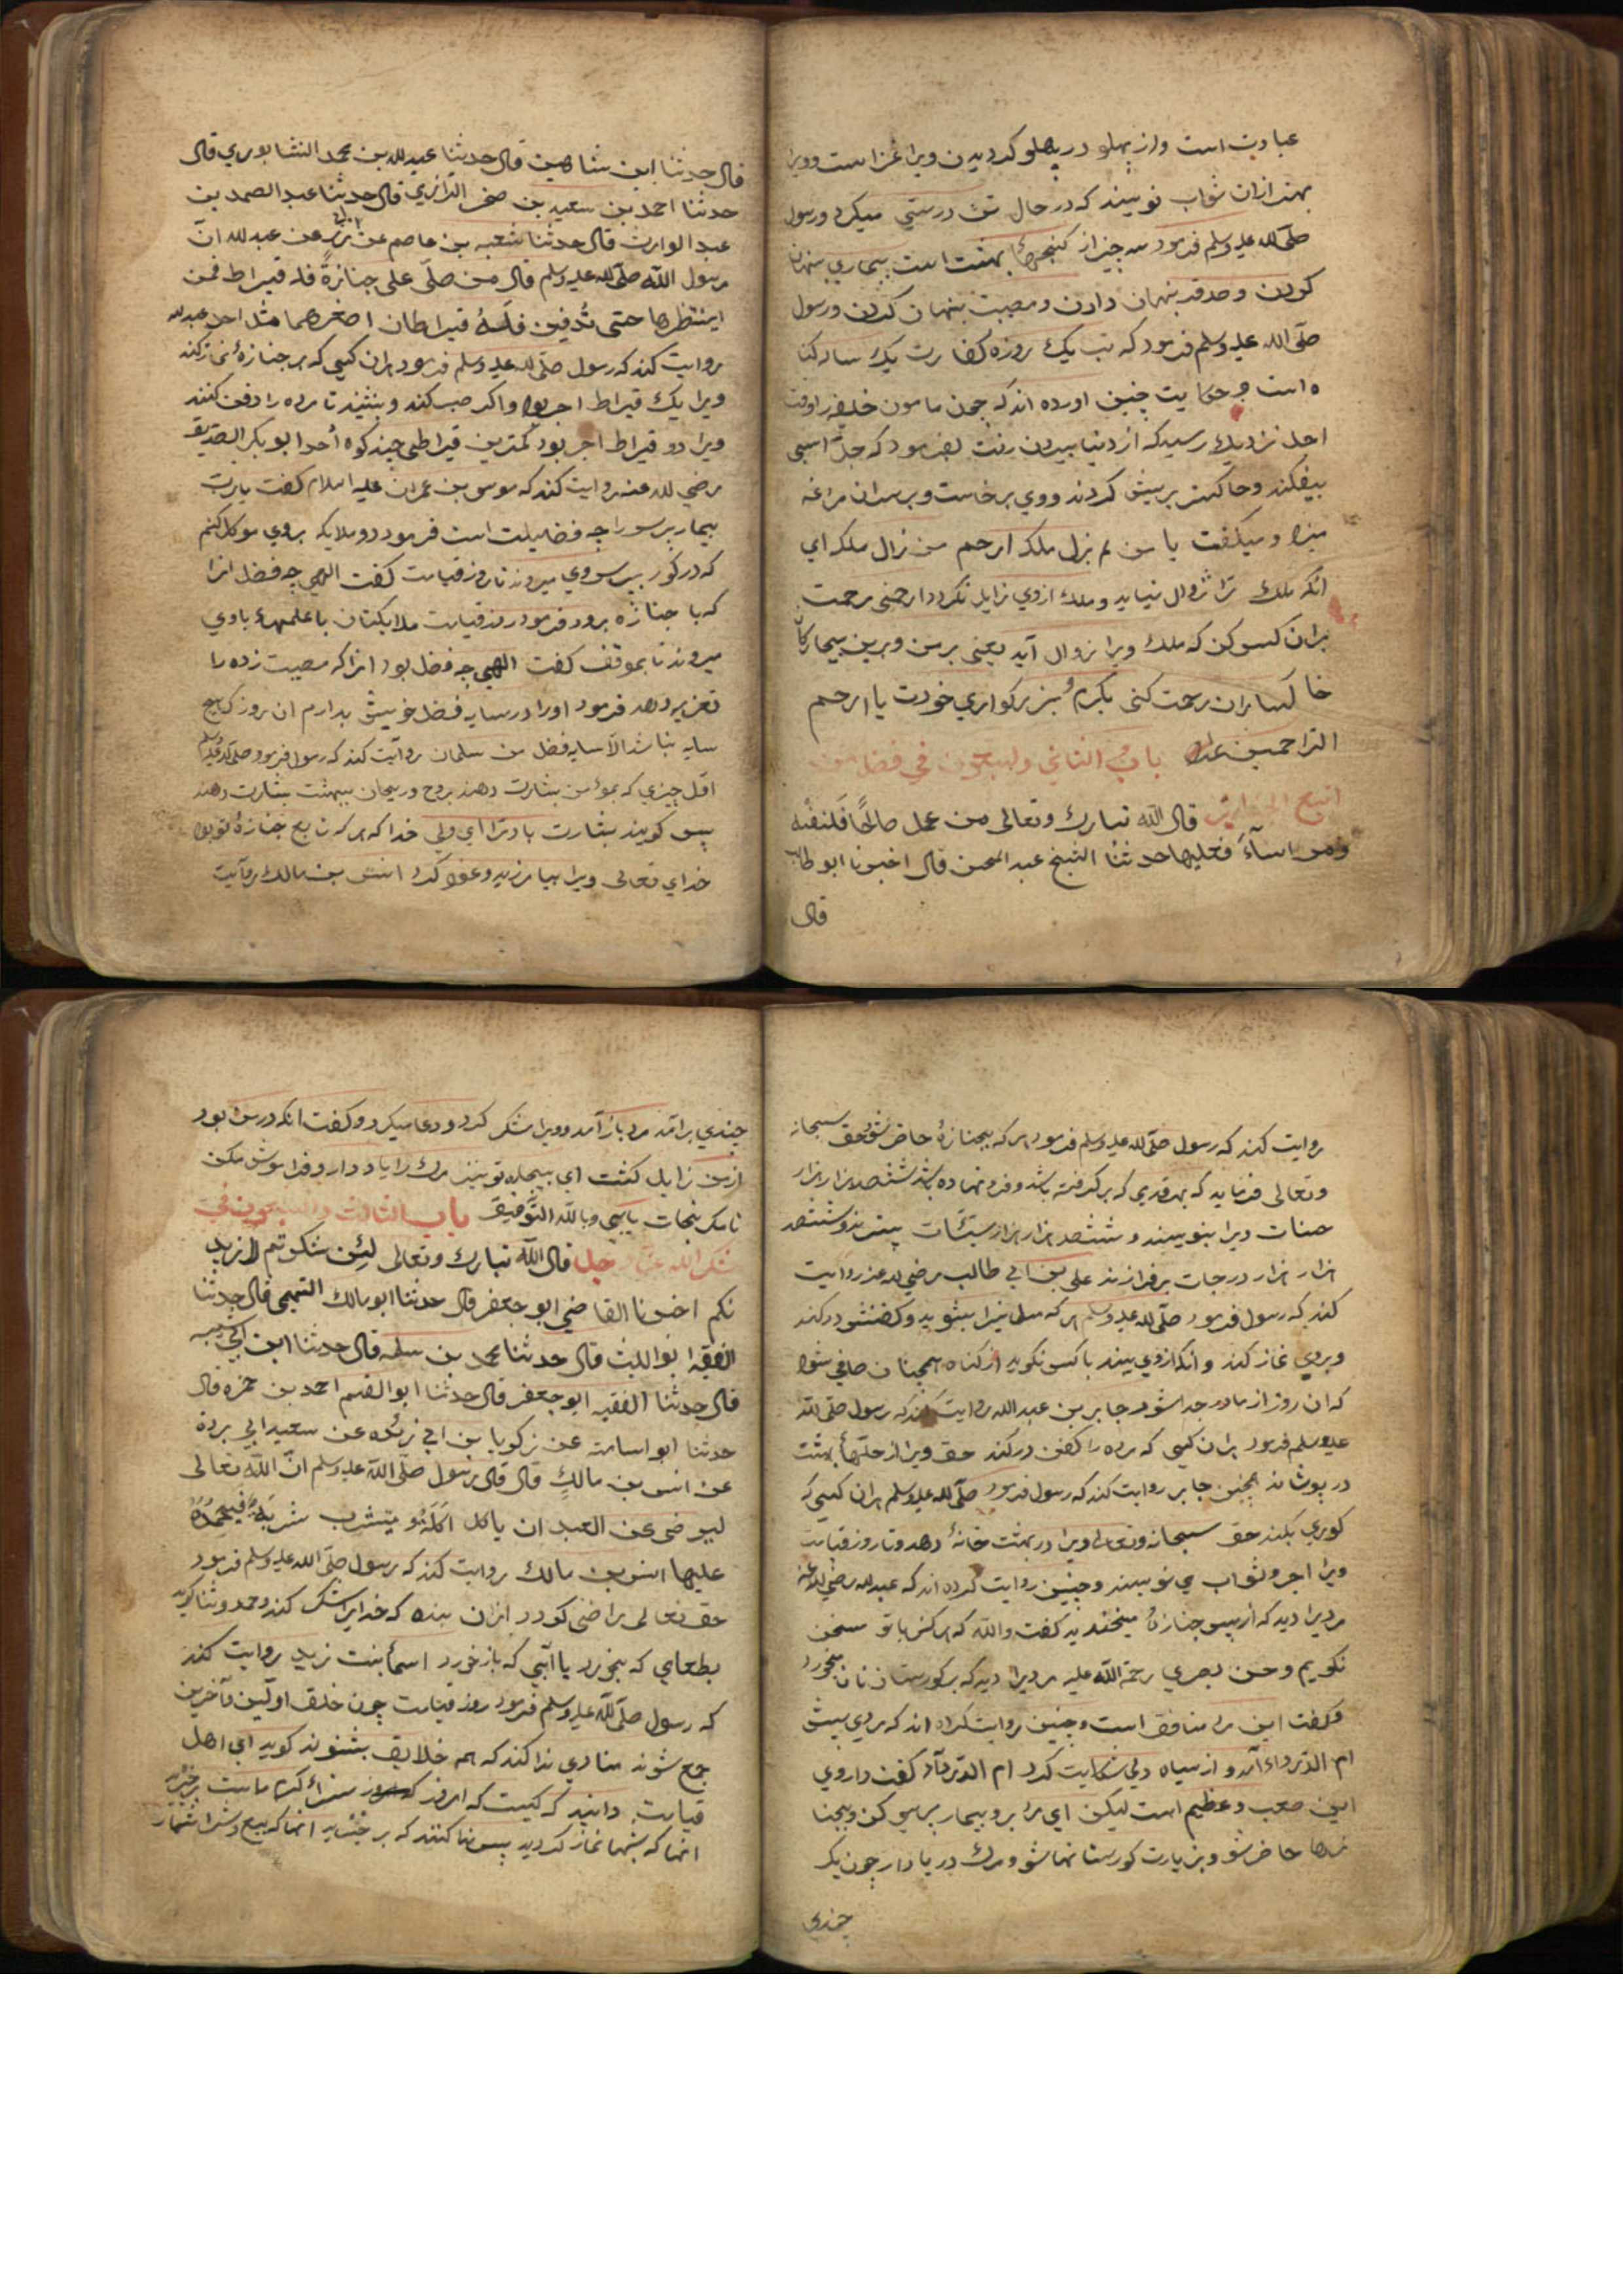 عبادت است واز پهلو در پهلو کردیدن ویرا غزاست وویرا
بهتر ازان ثواب نویسند که در حال تن درستی میکرد ورسول
صلّی الله علیه وسلم فرمود سه چیز از کنجهاء بهشت است بیماری پنهان
کردن وصدقه پنهان دادن ومصیبت پنهان کردن ورسول
صلّی الله علیه وسلم فرمود که تب یک روزه کفارت یک ساله کنا
ه است وحکایت چنین اورده اند که چون مامون خلیفه را وقت
اجل نزدیک رسید که از دنیا بیرون رفت بفرمود که جلّ اسبی
بیفکندند وخاکستر بریش کردند ووی برخاست وبران مراغه
میزد ومیکفت یا من لم یزل ملکه ارحم من زال ملکه ای
انکه ملک ترا زوال نیاید وملک از وی زایل نکردد ارحمنی رحمت
بران کس کن که ملک ویرا زوال آید یعنی برمن وبرین بیچارکان
خاکساران رحمت کنی بکرم وبزرکواری خودت یا ارحم
الراحمین باب الثانی والسبعون فی فضل من
اتبع الجنازة قال الله تبارك وتعالى من عمل صالحًا فلنفسه
ومن اساء فعلیها حدثنا الشیخ عبد المحسن قال اخبرنا ابو طالب
قال
قال حدثنا ابن شاهین قال حدثنا عبید لله بن محمد النشابوری قال
حدثنا احمد بن سعید بن صخر الدارزی قال حدثنا عبد الصمد بن
عبد الوارث قال حدثنا شعبه بن عاصم عن زر عن عبد لله انّ
رسول الله صلّی لله علیه وسلم قال من صلّی علی جنازةٍ فله قیراط فمن
انتظرها حتی تُدفن فَلَهُ قیراطان اصغرهما مثل احد عبد لله
روایت کند که رسول صلّی لله علیه وسلم فرمود هران کسی که بر جنازهٔ نماز کند
ویرا یک قیراط اجر بود واکر صبر کند وبنشیند تا مرده را دفن کنند
ویرا دو قیراط اجر بود کمترین قیراطی چند کوه اُحد ابو بکر الصدیق
رضی لله عنه روایت کند که موسی بن عمران علیه السلام کفت یارب
بیمار پرس را چه فضیلت است فرمود دو ملایکه بروی موکل کنم
که در کور بپرس وی میروند تا روز قیامت کفت الهی چه فضل انرا
که با جنازه برود فرمود روز قیامت ملایکتان با علمهاء با وی
میروند تا بموقف کفت الهی چه فضل بود انرا که مصیبت زده را
تعزیه دهد فرمود اورا در سایه فضل خویش بدارم ان روز که هیچ
سایه نباشد الّا سایه فضل من سلمان روایت کند که رسول فرمود صلّی الله علیه وسلم
اوّل چیزی که بمؤمن بشارت دهند بروح وریحان ببهشت بشارت دهند
پس کویند بشارت بادترا ای ولی خدا که هر که تابع جنازهٔ تو بود
خدای تعالی ویرا بیامرزید وعفو کرد انس بن مالک روایت
روایت کند که رسول صلّی لله علیه وسلم فرمود هر که بجنازهٔ حاضر شود حق سبحانه
وتعالی فرماید که بهر قدمی که برکرفته باشد وفرو نهاده باشد ششصد هزار هزار
حسنات ویرا بنویسند وششصد هزار هزار سیّئات بسترند وششصد
هزار هزار درجات برفرازند علی بن ابی طالب رضی لله عنه روایت
کند که رسول فرمود صلّی لله علیه وسلم هر که مسلمانیرا بشوید وکفنش در کند
وبروی نماز کند وانکه از وی بیند با کس نکوید از کناه همچنان صافی شود
که ان روز از مادر جدا شود جابر بن عبد الله روایت کند که رسول صلّی لله
علیه وسلم فرمود هران کسی که مرده را کفن در کند حق ویرا از حلّهاء بهشت
در پوشاند همچنین جابر روایت کند که رسول فرمود صلّی لله علیه وسلم هران کسی که
کوری بکند حق سبحانه وتعالی ویرا در بهشت خانهٔ دهد وتا روز قیامت
ویرا اجر وثواب می نویسند وچنین روایت کرده اند که عبد لله رضی لله عنه
مردیرا دید که از پس جنازهٔ میخندید کفت والله که هرکز با تو سخن
نکویم وحسن بصری رحمة الله علیه مردیرا دید که بر کورستان نان میخورد
وکفت این مرد منافق است وچنین روایت کرده اند که مردی پیش
ام الدّرداء آمد واز سیاه دلی شکایت کرد ام الدّرداء کفت داروی
این صعب وعظیم است لیکن ای مرد برو بیمار پرسی کن وبجنا
زها حاضر شو وبزیارت کورستانها شو ومرک در یاد دار چون یک
چندی
چندی برامد مرد باز آمد وویرا شکر کرد ودعا میکرد وکفت انکه در من بود
از من زایل کشت ای بیچاره تو نیز مرک را یاد دار وفراموش مکن
تا مکر نجات یابی وبالله التّوفیق باب الثالث والسبعون فی
شکر الله عزّ وجل قال الله تبارك وتعالى لئن شکرتم لازید
نکم اخبرنا القاضی ابو جعفر قال حدثنا ابو مالک التمیمی قال حدثنا
الفقیه ابو اللیث قال حدثنا محمد بن سلمه قال حدثنا ابن ابی شیبه
قال حدثنا الفقیه ابو جعفر قال حدثنا ابو القسم احمد بن حمزه قال
حدثنا ابو اسامة عن زکریا بن ابی زئده عن سعید ابی بردة
عن انس بن مالكٍ قال قال رسول صلّی الله علیه وسلم انّ الله تعالی
لیرضی عن العبد ان یاکل اکلةً و یشرب شربةً فیحمدهُ
علیها انس بن مالک روایت کند که رسول صلّی الله علیه وسلم فرمود
حق تعالی راضی کردد ازان بنده که خدایرا شکر کند وحمد وثنا کوید
بطعامی که بخورد یا آبی که باز خورد اسماء بنت زید روایت کند
که رسول صلّی لله علیه وسلم فرمود روز قیامت چون خلق اولین وآخرین
جمع شوند منادی ندا کند که همه خلایق بشنوند کوید ای اهل
قیامت دانید که کیست که امروز سزاء کرم ماست برخیزید
انها که بشبها نماز کردید پس ندا کنند که برخیزید انها که بیع وشرا شمار